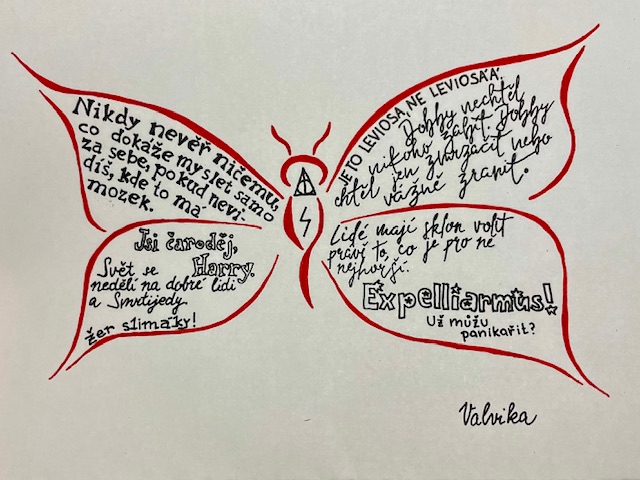 Nikdy nevěř ničemu,
co dokáže myslet samo
za sebe, pokud nevi-
díš, kde to má
mozek.
JE TO LEVIOSA, NE LEVIOSÁÁ.
Dobby nechtěl
nikoho zabít. Dobby
chtěl jen zmrzačit nebo
vážně zranit.
Jsi čaroděj,
Harry.
Svět se
nedělí na dobré lidi
a Smrtijedy
žer slimáky!
Lidé mají sklon volit
právě to, co je pro ně
nejhorší.
Expelliarmus!
Už můžu
panikařit?
Valvika